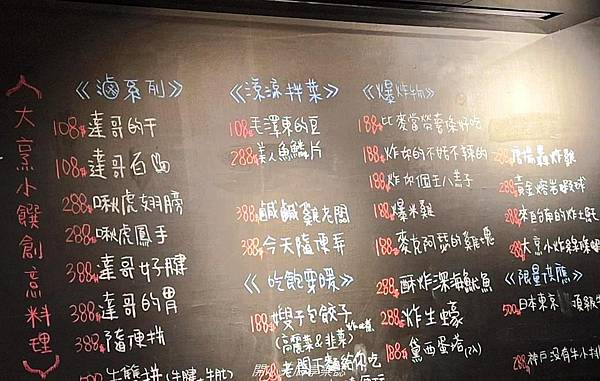 大烹小饌創意料理
《滷系列》
108.- 達哥的干
108.- 達哥百
288.- 啾虎翅膀
288.- 啾虎鳳手
388.- 達哥好腱
388.- 達哥的胃
388.- 隨便拼
500
《涼涼拌菜》
108.- 毛澤東的豆
288.- 美人魚鱗片
388.- 鹹鹹雞老闆
388.- 今天隨東弄
《吃飽要暖》
188.- 嫂子包餃子
(高麗菜&韭菜)
《爆炸物》
188.- 比麥當勞薯條好吃
188.- 炸奶的不姑不辣的
188.- 炸你個王八蛋子
188.- 爆米雞
388.- 麥克阿瑟的雞塊
288.- 酥炸深海魷魚
288.- 炸生蠔
188.- 黛西蛋塔(2入)
黃金熔岩蝦球
288.- 大烹小炸綜條
《限量供應》
500 日本東京
288.- 神戶沒有牛小排